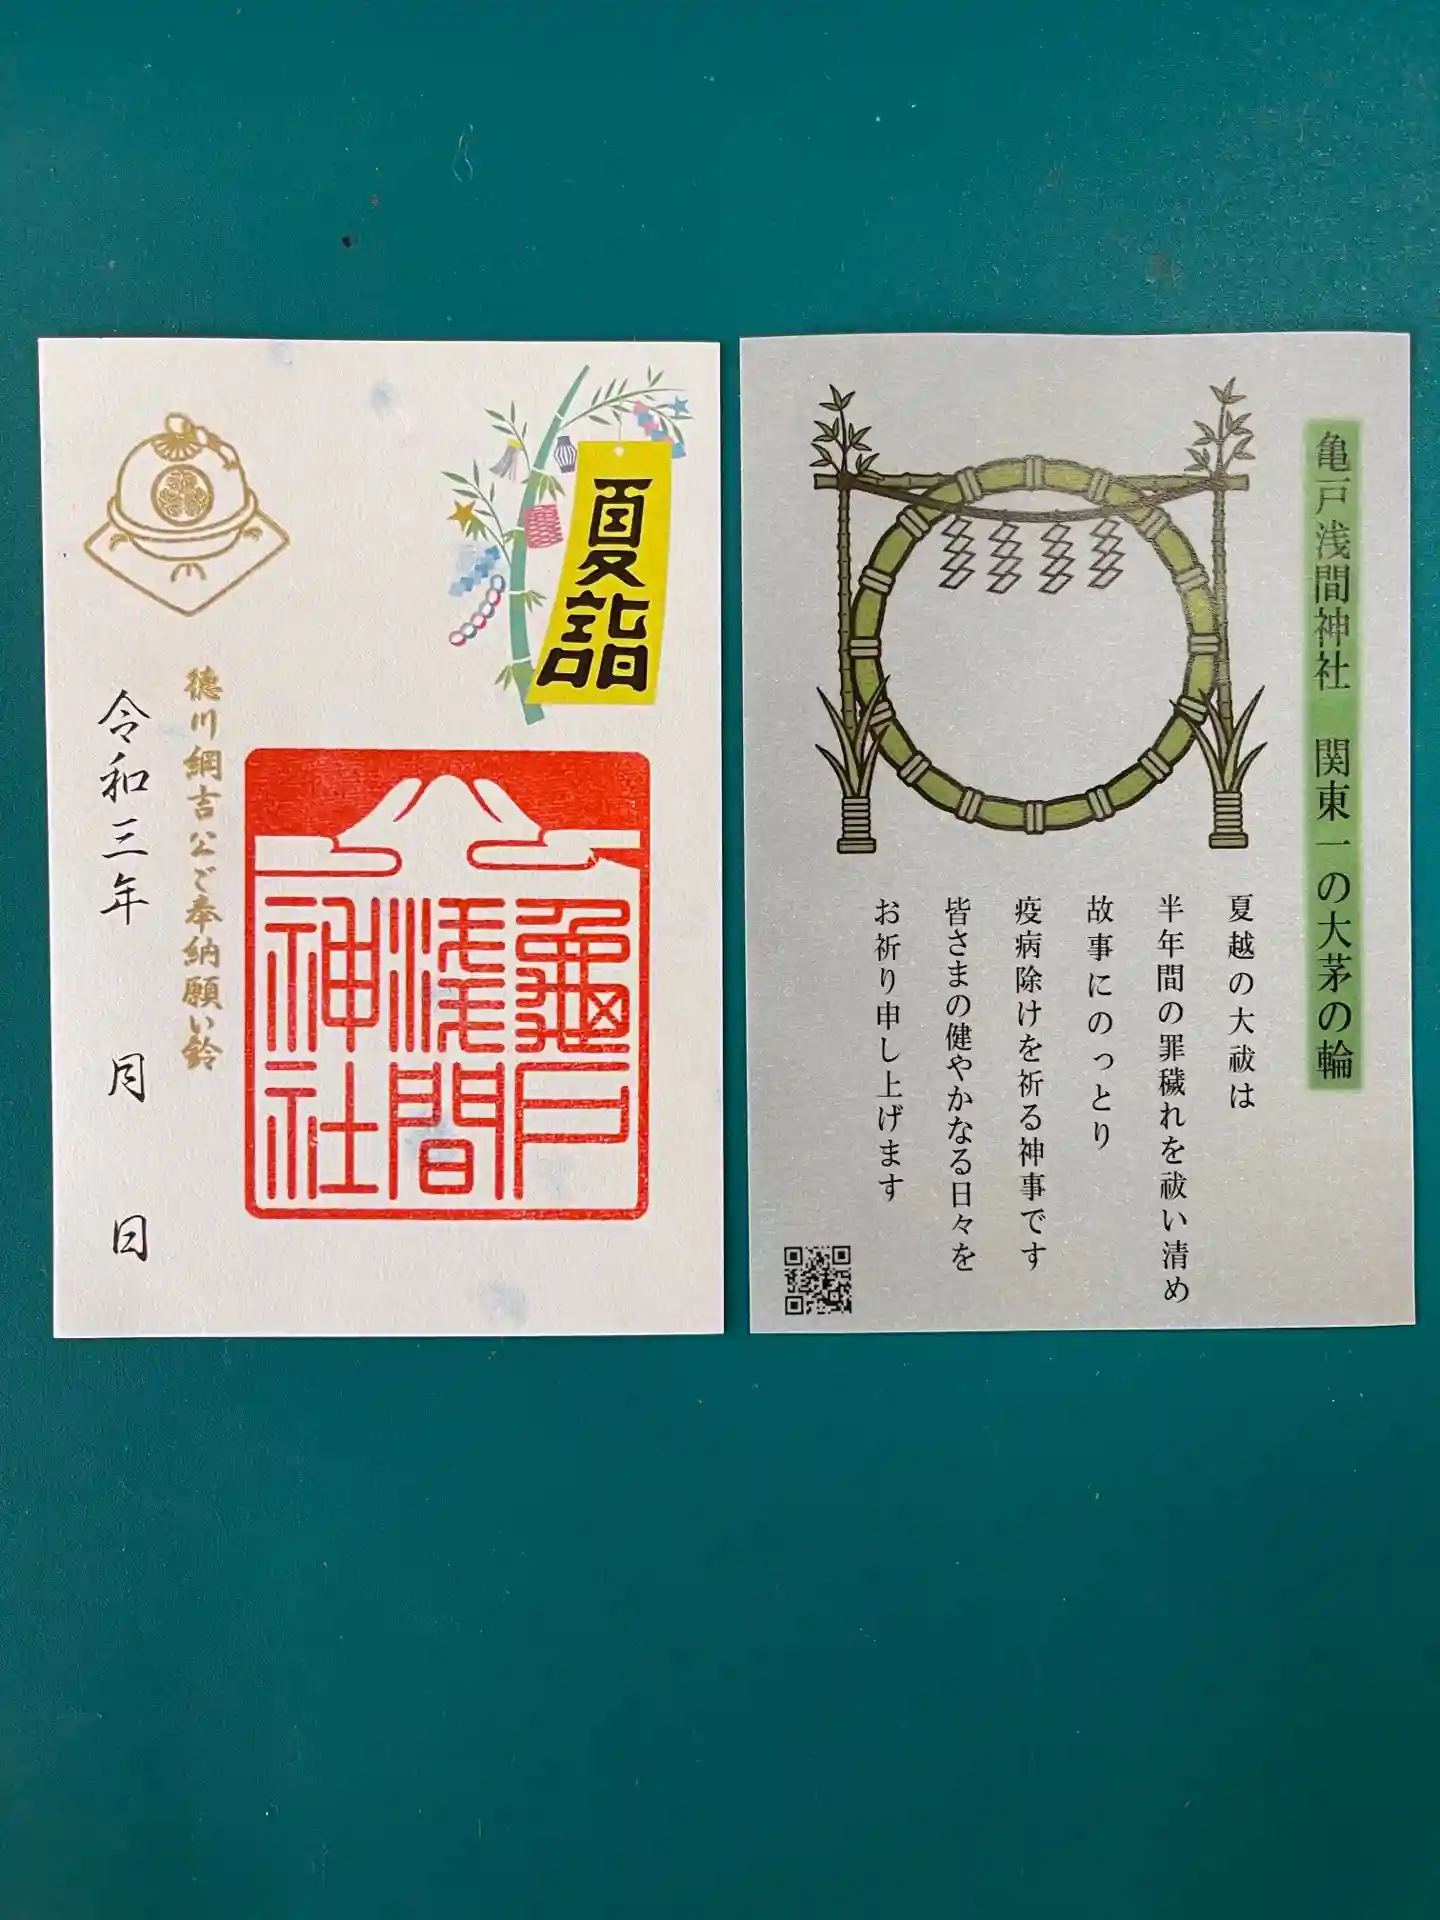 夏詣
亀戸
浅間
神社
徳川綱吉公ご奉納願い鈴
令和三年 月 日
亀戸浅間神社 関東一の大茅の輪
夏越の大祓は
半年間の罪穢れを祓い清め
故事にのっとり
疫病除けを祈る神事です
皆さまの健やかなる日々を
お祈り申し上げます